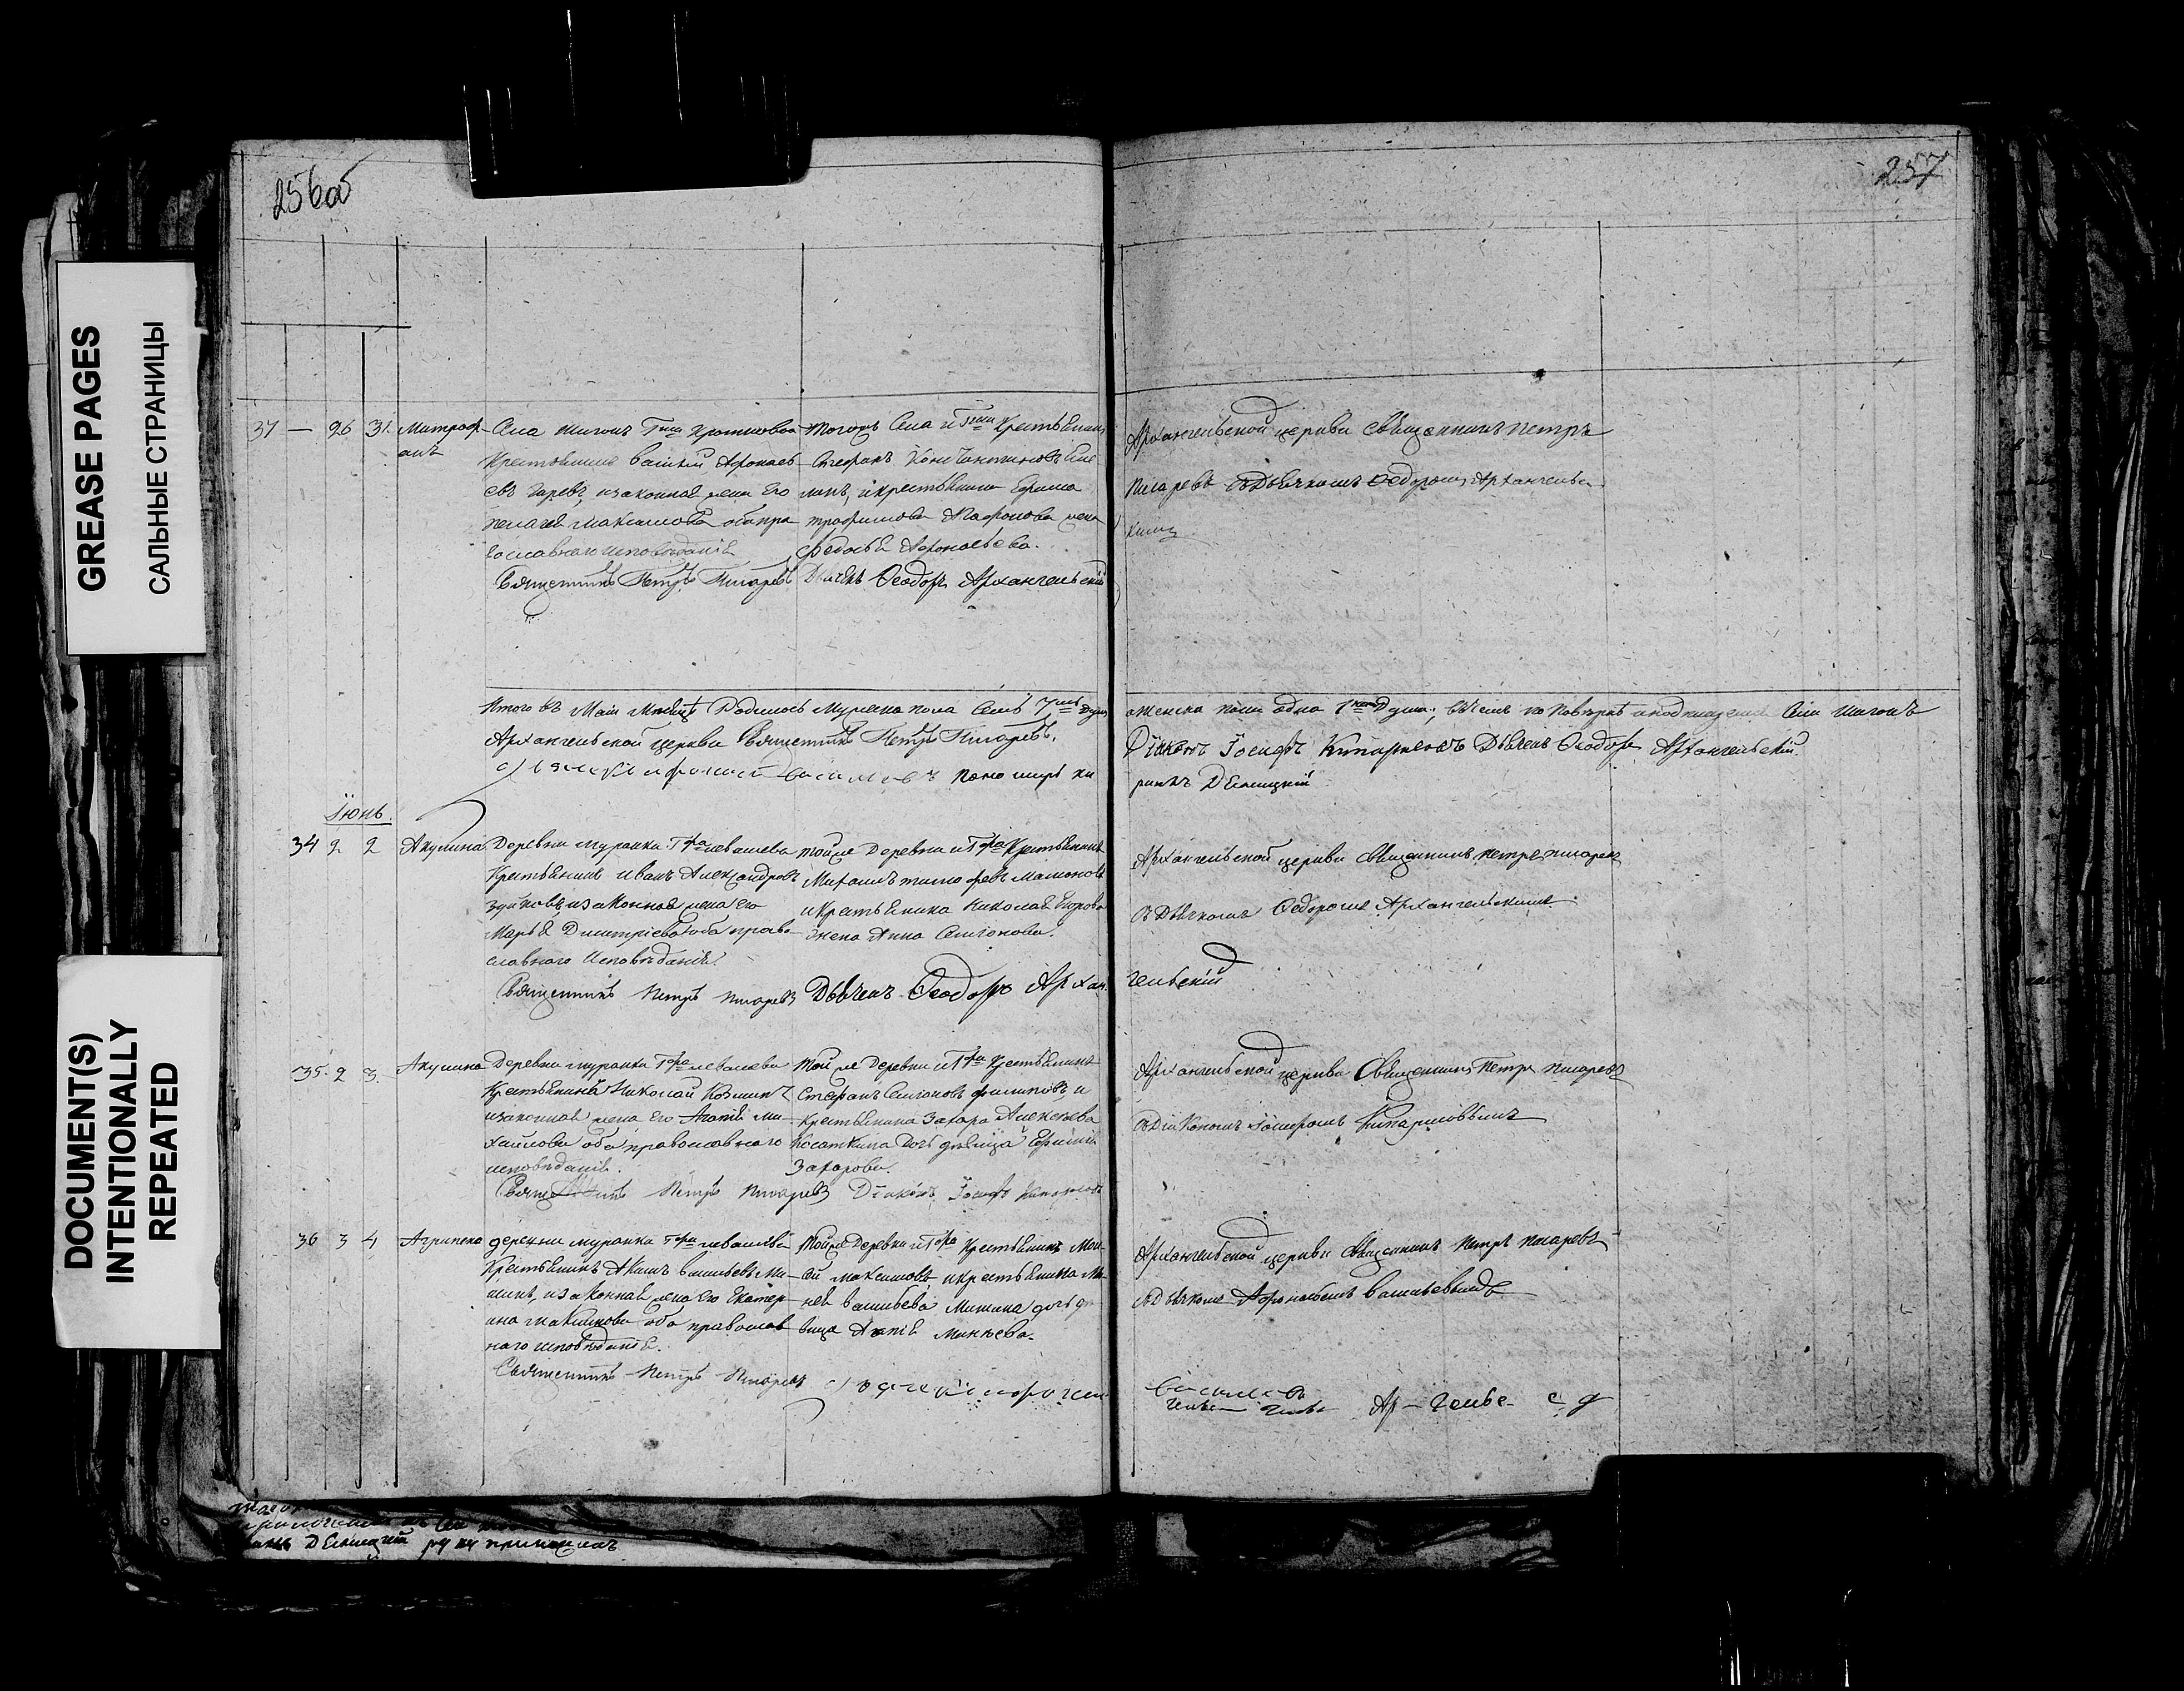 256об
257
GREASE PAGES
САЛЬНЫЕ СТРАНИЦЫ
DOCUMENT(S)
INTENTIONALLY
REPEATED
37 — 26 31 Митроф
анъ
Села Шигонъ Гна
Крестьянинъ Василий Афонась
евъ и законная жена его
Пелагея Максимова оба пра
вославнаго исповѣданія
Священникъ Петръ Писаревъ
Тогожъ Села и Гна Крестьянинъ
Стефанъ Константиновъ
и крестьянина Ефима
Трофимова Агафонова жена
Федосья Афонасьева.
Дьячекъ Феодоръ Архангельскій
Архангельской церкви священникъ Петръ
Писаревъ съ Дьячкомъ Федоромъ Архангельс
кимъ
Итого въ Маи Месяцѣ Родилось мужеска пола Семь 7мь Душъ
а женска пола одна 1на Душа;
Села Шигонъ
Архангельской церкви Священникъ Петръ Писаревъ.
Діаконъ Іосифъ Кипарисовъ Дьячекъ Феодоръ Архангельскій
Іюнь.
34 2 2 Акулина
Деревни Муранки Гра Левашева
Крестьянинъ Иванъ Александровъ
Зуйковъ и законная жена его
Марья Димитріева оба право
славнаго исповѣданія.
Священникъ Петръ Писаревъ
Тойже Деревни и Гра Крестьянинъ
Михаилъ Тимофевъ Мамоновъ
и Крестьянина Николая Егорова
жена Анна Семіонова.
Дьячекъ Феодоръ Архан
гельскій
Архангельской церкви священникъ Петръ Писаревъ
съ Дьячкомъ Федоромъ Архангельскимъ
35. 2 3. Акулина
Деревни Муранки Гра Левашева
Крестьянинъ Николай Козминъ
и законная жена его Агапія Ми
хайлова оба православнаго
исповѣданія.
Священникъ Петръ Писаревъ
Тойже Деревни и Гра Крестьянинъ
Стефанъ Семіоновъ Филиповъ и
Крестьянина Захара Алексѣева
Косаткина дочь дѣвица
Захарова.
Діаконъ Іосифъ Кипарисовъ
Архангельской церкви Священникъ Петръ Писаревъ
съ Діакономъ Іосифомъ Кипарисовымъ
36 3 4 Агрипена
Деревни Муранки Гра Левашева
Крестьянинъ Акимъ Васильевъ Ми
шинъ, и законная жена его Екатер
ина Максимова оба православ
наго исповѣданія.
Священникъ Петръ Писаревъ
Тойже Деревни и Гра Крестьянинъ Мои
сей Максимовъ и крестьянина Ми
нея Васильева Мишина дочь дѣ
вица Агапія Минѣева.
Архангельской церкви Священникъ Петръ Писаревъ
съ Дьячкомъ Афонасьемъ Васильевымъ
руку приложилъ